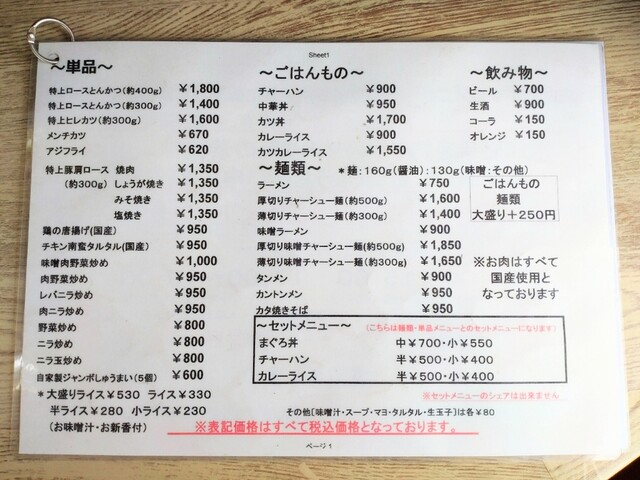 Sheet1
～単品～
特上ロースとんかつ(約400g) ￥1,800
特上ロースとんかつ(約300g) ￥1,400
特上ヒレカツ(約300g) ￥1,600
メンチカツ ￥670
アジフライ ￥620
特上豚肩ロース 焼肉 ￥1,350
(約300g) しょうが焼き ￥1,350
みそ焼き ￥1,350
塩焼き ￥1,350
鶏の唐揚げ(国産) ￥950
チキン南蛮タルタル(国産) ￥950
味噌肉野菜炒め ￥1,000
肉野菜炒め ￥950
レバニラ炒め ￥950
肉ニラ炒め ￥950
野菜炒め ￥800
ニラ炒め ￥800
ニラ玉炒め ￥800
自家製ジャンボしゅうまい(5個) ￥600
＊大盛りライス￥530 ライス￥330
半ライス￥280 小ライス￥230
(お味噌汁・お新香付)
～ごはんもの～
チャーハン ￥900
中華丼 ￥950
カツ丼 ￥1,700
カレーライス ￥900
カツカレーライス ￥1,550
～麺類～ ＊麺:160g(醤油):130g(味噌:その他)
ラーメン ￥750
厚切りチャーシュー麺(約500g) ￥1,600
薄切りチャーシュー麺(約300g) ￥1,400
味噌ラーメン ￥900
厚切り味噌チャーシュー麺(約500g) ￥1,850
薄切り味噌チャーシュー麺(約300g) ￥1,650
タンメン ￥900
カントンメン ￥950
カタ焼きそば ￥950
～飲み物～
ビール ￥700
生酒 ￥900
コーラ ￥150
オレンジ ￥150
ごはんもの
麺類
大盛り＋250円
※お肉はすべて
国産使用と
なっております
～セットメニュー～ (こちらは麺類・単品メニューとのセットメニューになります)
まぐろ丼 中￥700・小￥550
チャーハン 半￥500・小￥400
カレーライス 半￥500・小￥400
※セットメニューのシェアは出来ません
その他〔味噌汁・スープ・マヨ・タルタル・生玉子〕は各￥80
※表記価格はすべて税込価格となっております。
ページ 1